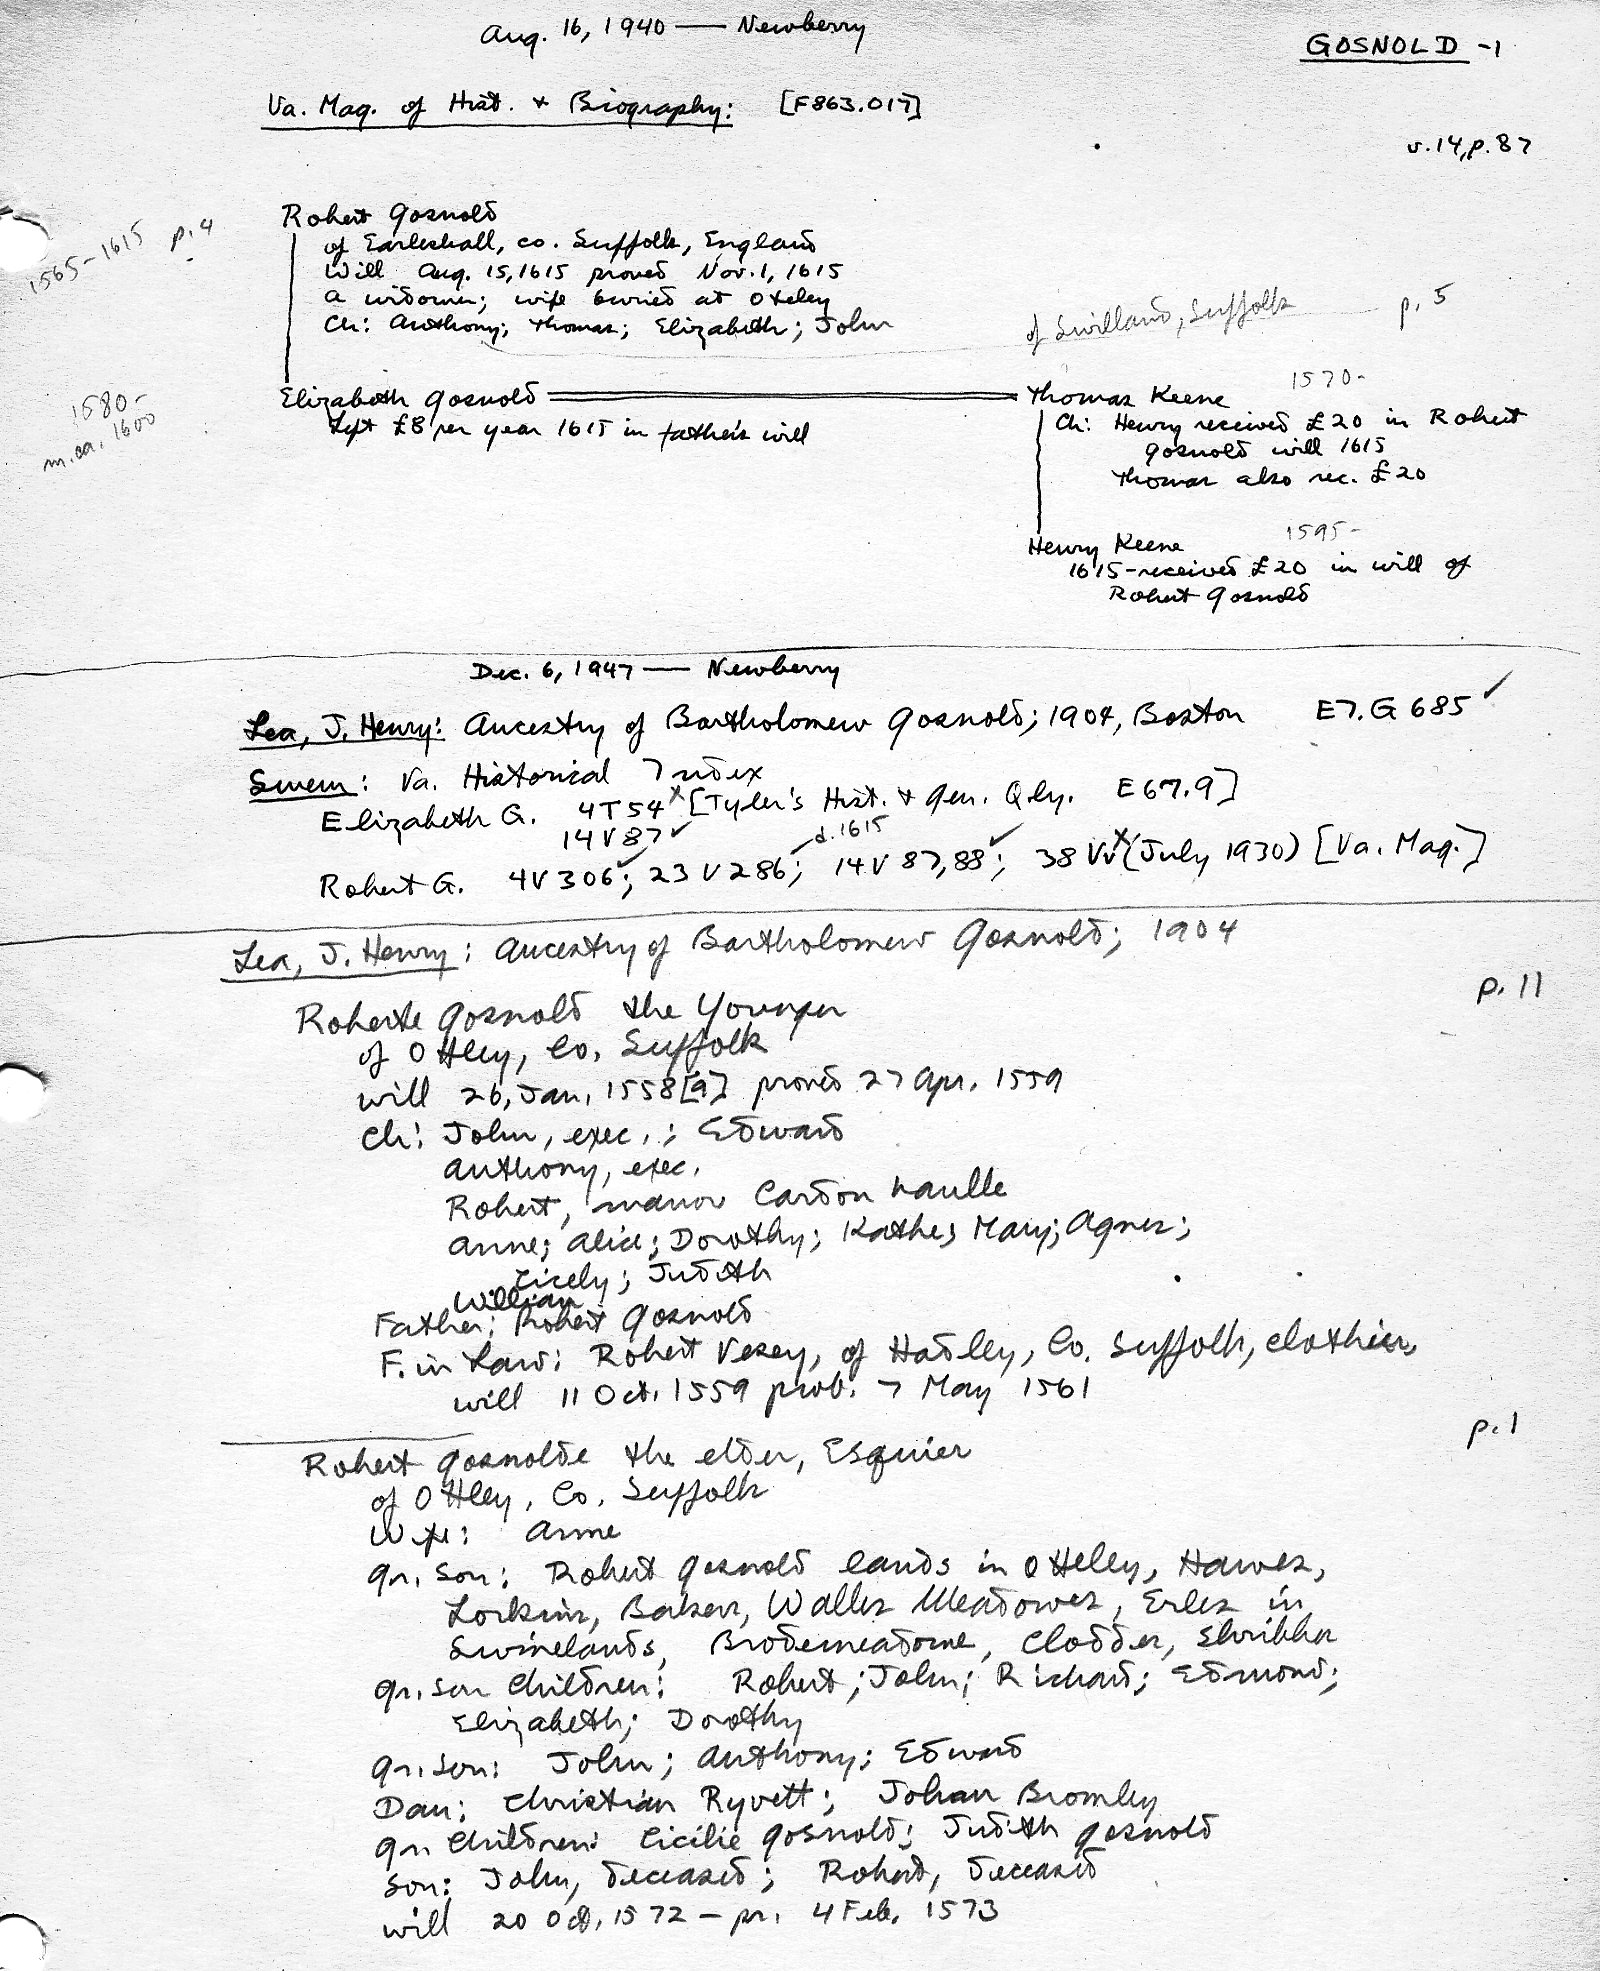 Aug. 16, 1940 — Newberry
GOSNOLD -1
Va. Mag. of Hist. + Biography: [F863.017]
v.14, p.87
1565-1615 p.4
Robert Gosnold
of Earleshall, co. Suffolk, England
Will Aug. 15, 1615 proved Nov. 1, 1615
a widower; wife buried at Oteley
Ch: Anthony; Thomas; Elizabeth; John
of Swilland, Suffolk p. 5
1580-
m. ca. 1600
Elizabeth Gosnold
Left £8 per year 1615 in father's will
Thomas Keene 1570-
Ch: Henry received £20 in Robert
Gosnold will 1615
Thomas also rec. £20
Henry Keene 1595-
1615-received £20 in will of
Robert Gosnold
Dec. 6, 1947 — Newberry
Lea, J. Henry: Ancestry of Bartholomew Gosnold; 1904, Boston E7.G 685 ✓
Swem: Va. Historical Index
Elizabeth G. 4T54 x [Tyler's Hist. + Gen. Qly. E67.9]
14V87 ✓
d. 1615
Robert G. 4V306 ✓; 23V286; 14V87,88 ✓; 38 Vv x (July 1930) [Va. Mag.]
Lea, J. Henry: Ancestry of Bartholomew Gosnold; 1904
p. 11
Roberte Gosnold the Younger
of Otley, Co. Suffolk
will 26, Jan, 1558[9] proved 27 Apr. 1559
Ch: John, exec.; Edward
Anthony, exec.
Robert, manor Cardon haulle
Anne; Alice; Dorothy; Kathe; Mary; Agnes;
Cicely; Judith
William
Father: Robert Gosnold
F. in Law: Robert Vesey, of Hadley, Co. Suffolk, clothier,
will 11 Oct. 1559 prob. 7 May 1561
p. 1
Robert Gosnolde the elder, Esquier
of Otley, Co. Suffolk
Wife: Anne
Gr. Son: Robert Gosnold lands in Otteley, Hawes,
Lorkins, Bakers, Walles Meadowes, Erles in
Swinelands, Brodemeadowe, Clodder,
Gr. Son Children: Robert; John; Richard; Edmond;
Elizabeth; Dorothy
Gr. Son: John; Anthony; Edward
Dau: Christian Ryvett; Johan Bromley
Gr. Children: Cicilie Gosnold; Judith Gosnold
Son: John, deceased; Robert, deceased
will 20 Oct, 1572 - pr. 4 Feb. 1573